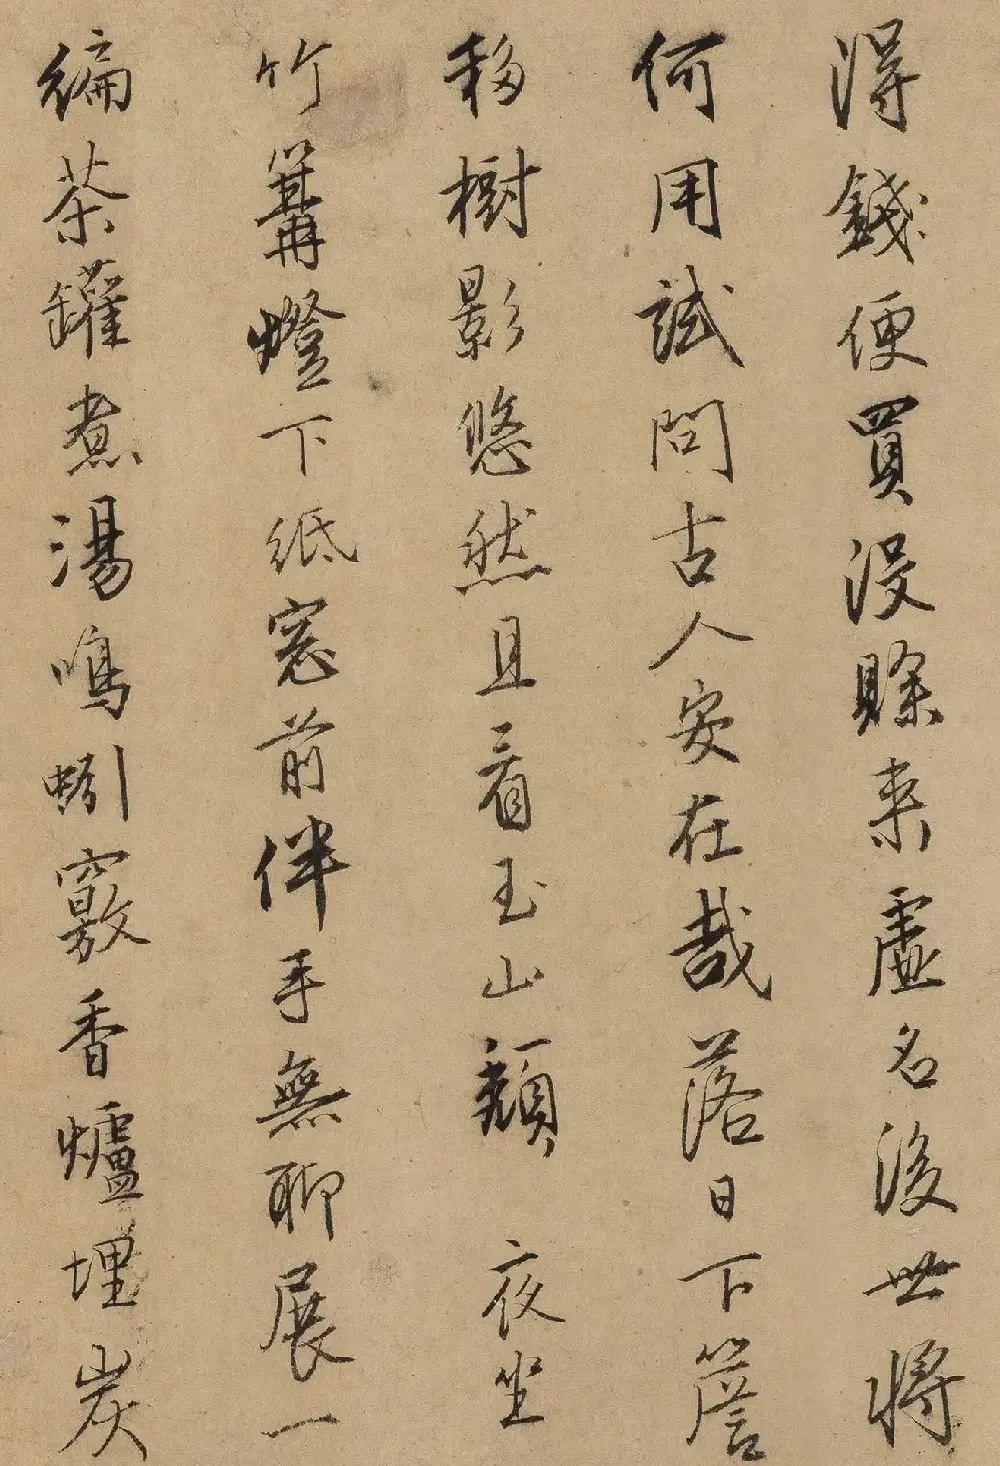 得錢便買没賖来虚名後世将
何用試問古人安在哉落日下簷
移樹影悠然且看玉山頹 夜坐
竹篝燈下紙窓前伴手無聊展一
編茶罐煮湯鳴蚓竅香爐埋炭